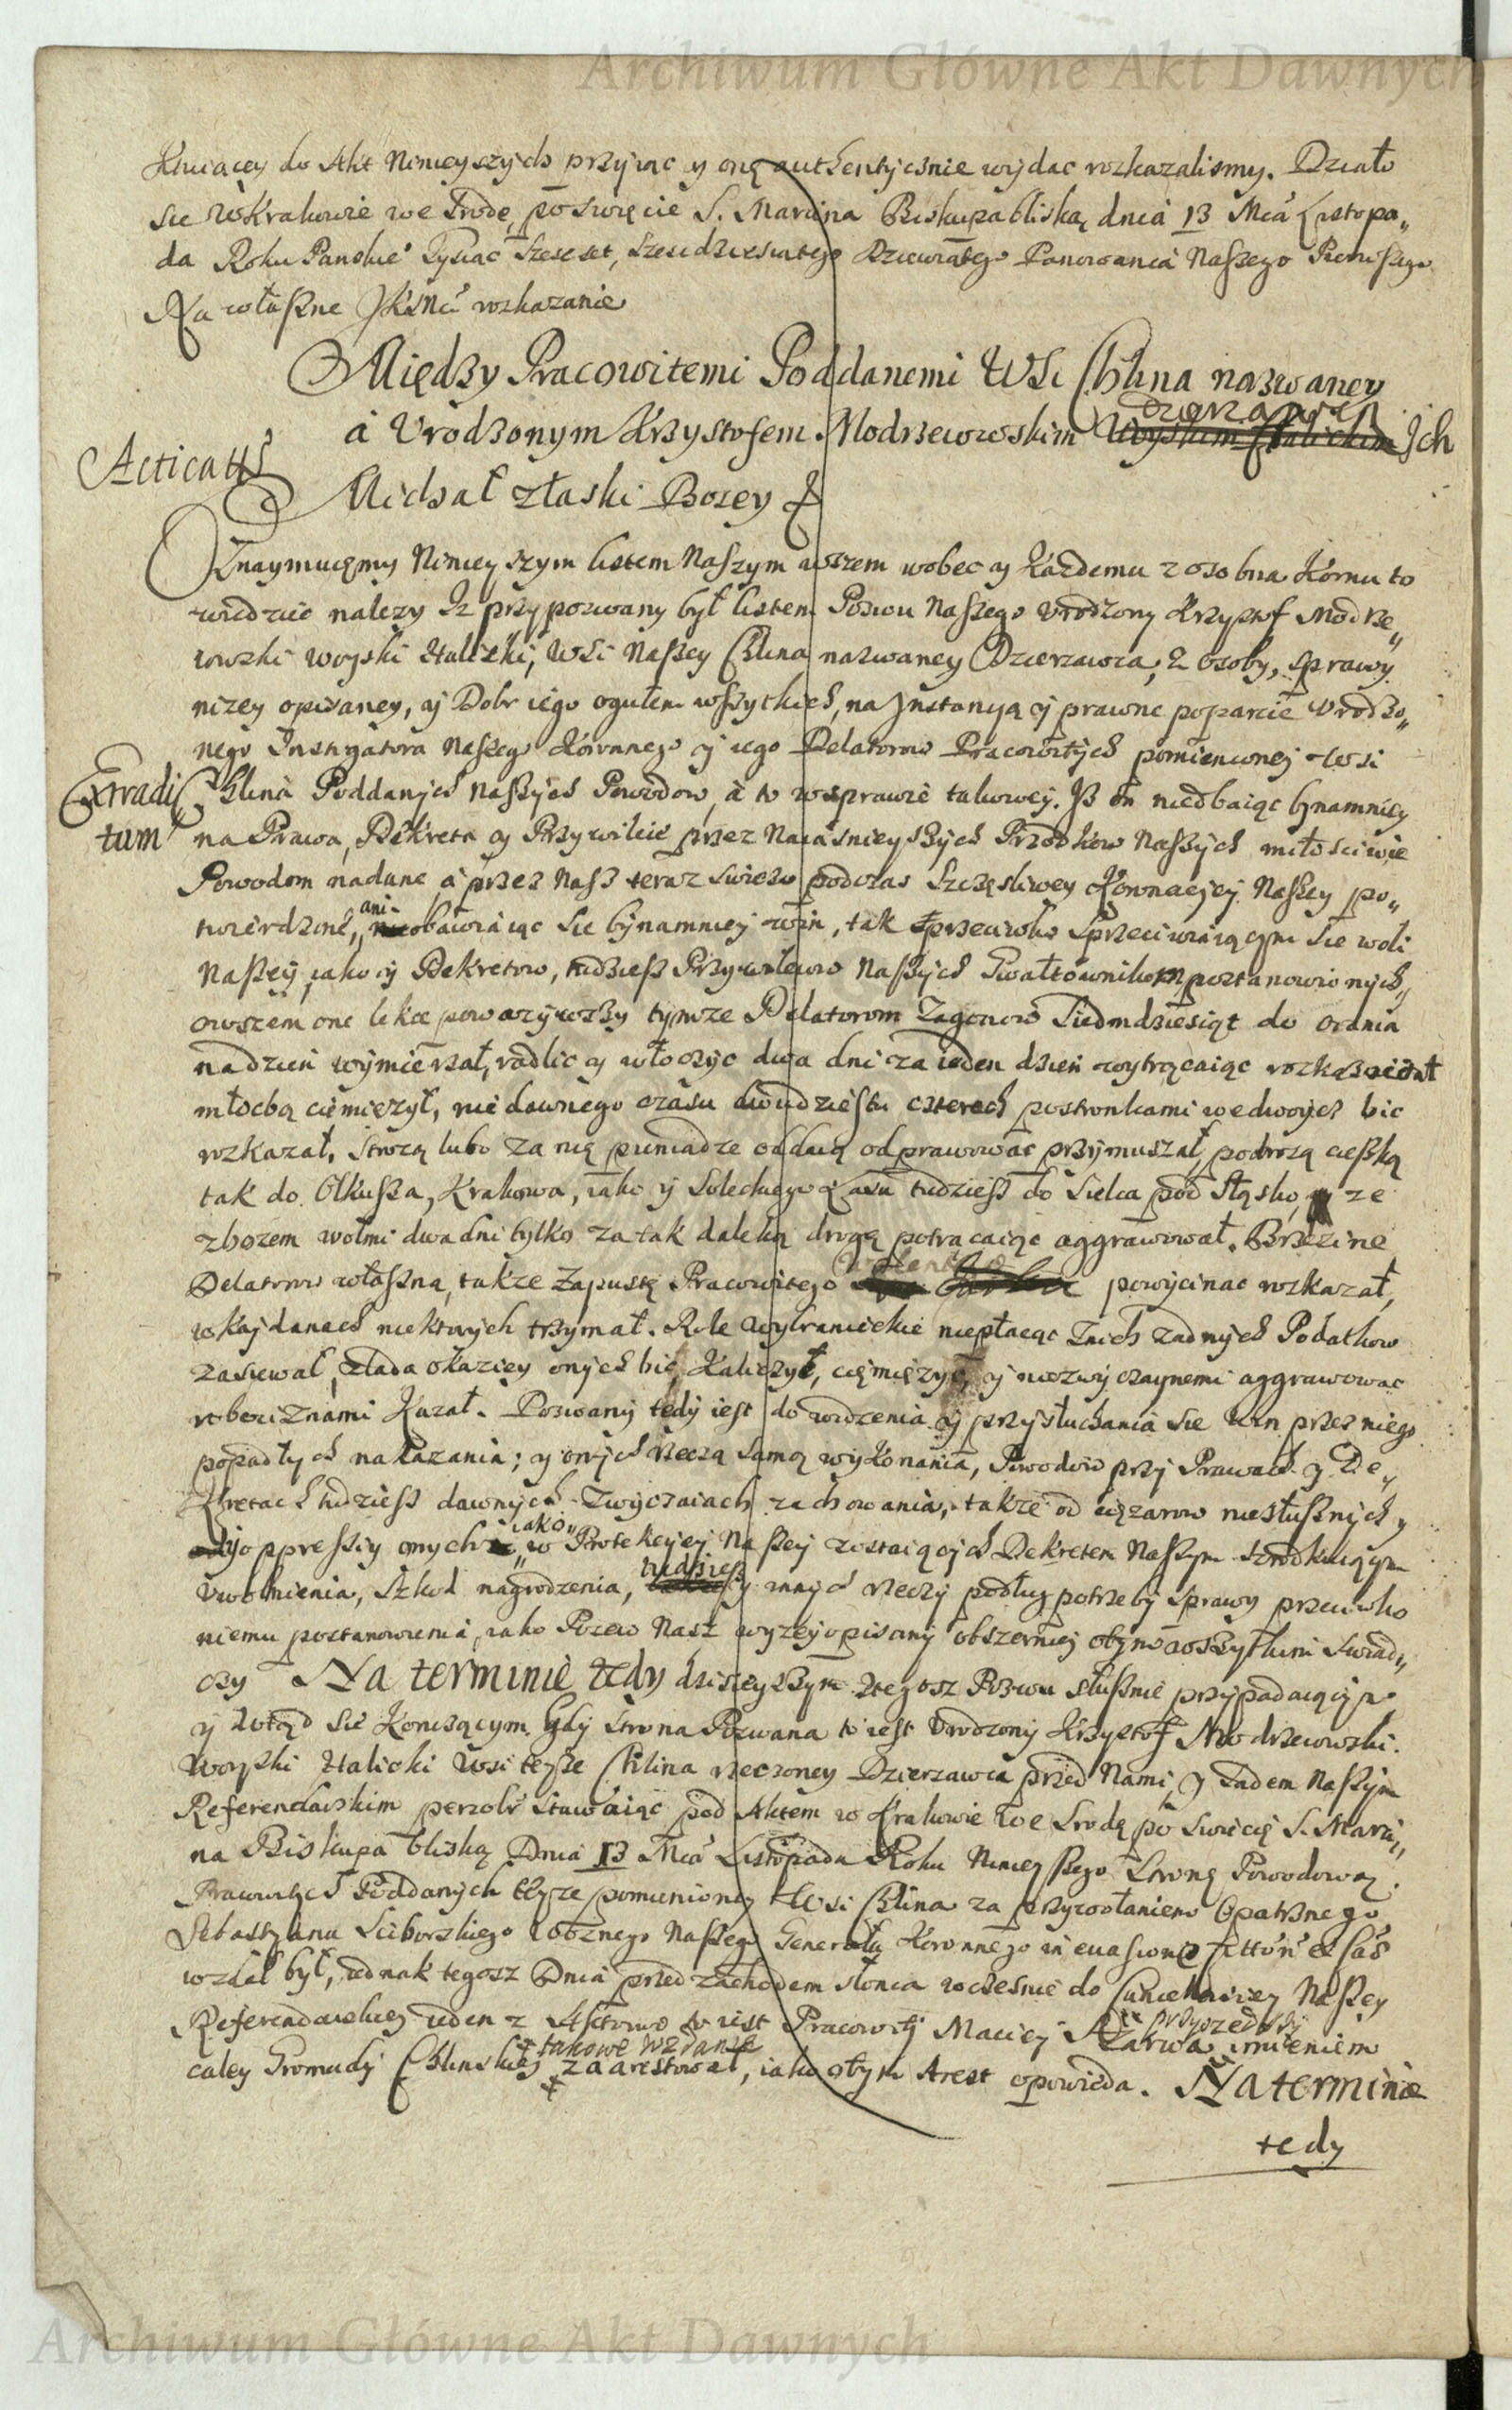 Archiwum Główne Akt Dawnych
do Akt Ninieyszych przyiąc y onę authentycznie wydac rozkazalismy. Działo
sie w Krakowie we Srodę po swięcie S. Marcina Biskupa bliską dnia 13 Mca Listopa„
da Roku Panskie° Tysiąc Szescset, Szescdziesiątego Dziewiątego Panowania Naszego Pierwszego
Na własne JKMci rozkazanie
Między Pracowitemi Poddanemi WSi Chlina nazwaney
dzierzawcą
à Vrodzonym Krzysztofem Modrzewowskim Woyskim Halickim Ich
Acticatũ
Michał z łaski Bozey
Oznaymuięmy Ninieyszym listem Naszym wszem wobec y kazdemu z osobna komu to
wiedziec nalezy Iz przypozwany był listem Pozwu Naszego Vrodzony Krzysztof Modrze„
wowski woyski Halicki, WSi Naszey Chlina nazwaney Dzierzawca, z Osoby, sprawy
nizey opisaney, y Dobr iego ogułem wszytkich, na Instancyą y prawne poparcie Vrodzo„
nego Instygatora Naszego Koronnego y iego Delatorow Pracowitych pomienioney wsi
Extradi
tum
Chlina Poddanych Naszych Powodow, à to w sprawie takowey. Iż on niedbaiąc bynamniey
na Prawa, Dekreta y Przywileie przez Naiasnieyszych Przodkow Naszych miłosciwie
Powodom nadane à przez Nasz teraz swiezo podczas Szczęsliwey Koronacyey Naszey po„
ani
twierdzone, obawiaiąc sie bynamniey win, tak przeciwko sprzeciwiaiącym sie woli
Naszey, iako y Dekretow, tudziesz Przywileiow Naszych Gwałtownikom postanowionych„
owszem one lekce powazywszy tymze Delatorom Zagonow Siedmdziesiąt do orania
na dzien wymierzał, radlic y włoczyc dwa dni za ieden dzien wytrącaiąc rozkazował
młocbą ciemięzył, nie dawnego czasu dwudziestu czterech postronkami we dwoych bic
rozkazał, Strozą lubo za nię pieniądze oddaią odprawowac przymuszał, podrozą cięszką
tak do Olkusza, Krakowa, iako y Soleckiego Lasu tudziesz do Sielca pod Sląsko, ze
zbozem wołmi dwa dni tylko za tak daleką drogę potrącaiąc aggrawował. Brzezinę
Delatorow własną, takze Zapustę Pracowitego powycinac rozkazał,
w kaydanach niektorych trzymał. Role Wybranieckie niepłacąc z nich zadnych Podatkow
zasiewał, z lada okaziey onych bił, Kaliczył, cięmięzył, y niezwyczaynemi aggrawowac
robociznami Kazał. Pozwany tedy iest do widzenia y przysłuchania sie win przez niego
popadłych nakazania; y onych rzeczą samą wykonania, Powodow przy Prawach y De„
kretach tudziesz dawnych Zwyczaiach zachowania, takze od cięzarow niesłusznych y
iako„
oppressiy onych w Protekcyey Naszey zostaiących Dekretem Naszym
tudziesz
vwolnienia, Szkod nagrodzenia, y innych rzeczy podług potrzeby sprawy przeciwko
niemu postanowienia, iako Pozew Nasz wyzey opisany obszerniey o tym wszytkim swiad„
czy Na terminie tedy dzisieyszym z tegosz Pozwu słusznie przypadaiącym
y dotąd sie Konczącym. Gdy strona Pozwana to iest Vrodzony Krzysztof Modrzewowski
Woyski Halicki wsi teyze Chlina rzeczoney Dzierzawca przed Nami, y Sądem Naszym
Referendarskim stawaiąc pod Aktem w Krakowie we Srodę po swięcię S. Marci„
na Biskupa bliską Dnia 13 Mca Listopada Roku Ninieyszego Stronę Powodową
Pracowitych Poddanych teyze pomienioney Wsi Chlina za przywołaniem Opatrznego
Sebastyana Sciborskiego woznego Naszego Generała Koronnego
wzdał był, iednak tegosz Dnia przed zachodem słonca wczesnie do Cancellariey Naszey
przyszedszy
Referendarskiey ieden z Aktorow to iest Pracowity Maciey imieniem
takowe wzdanie
całey Gromady Chlinskiey, zaaresztował, iako o tym Arest opowieda. Na terminie
tedy
Archiwum Główne Akt Dawnych